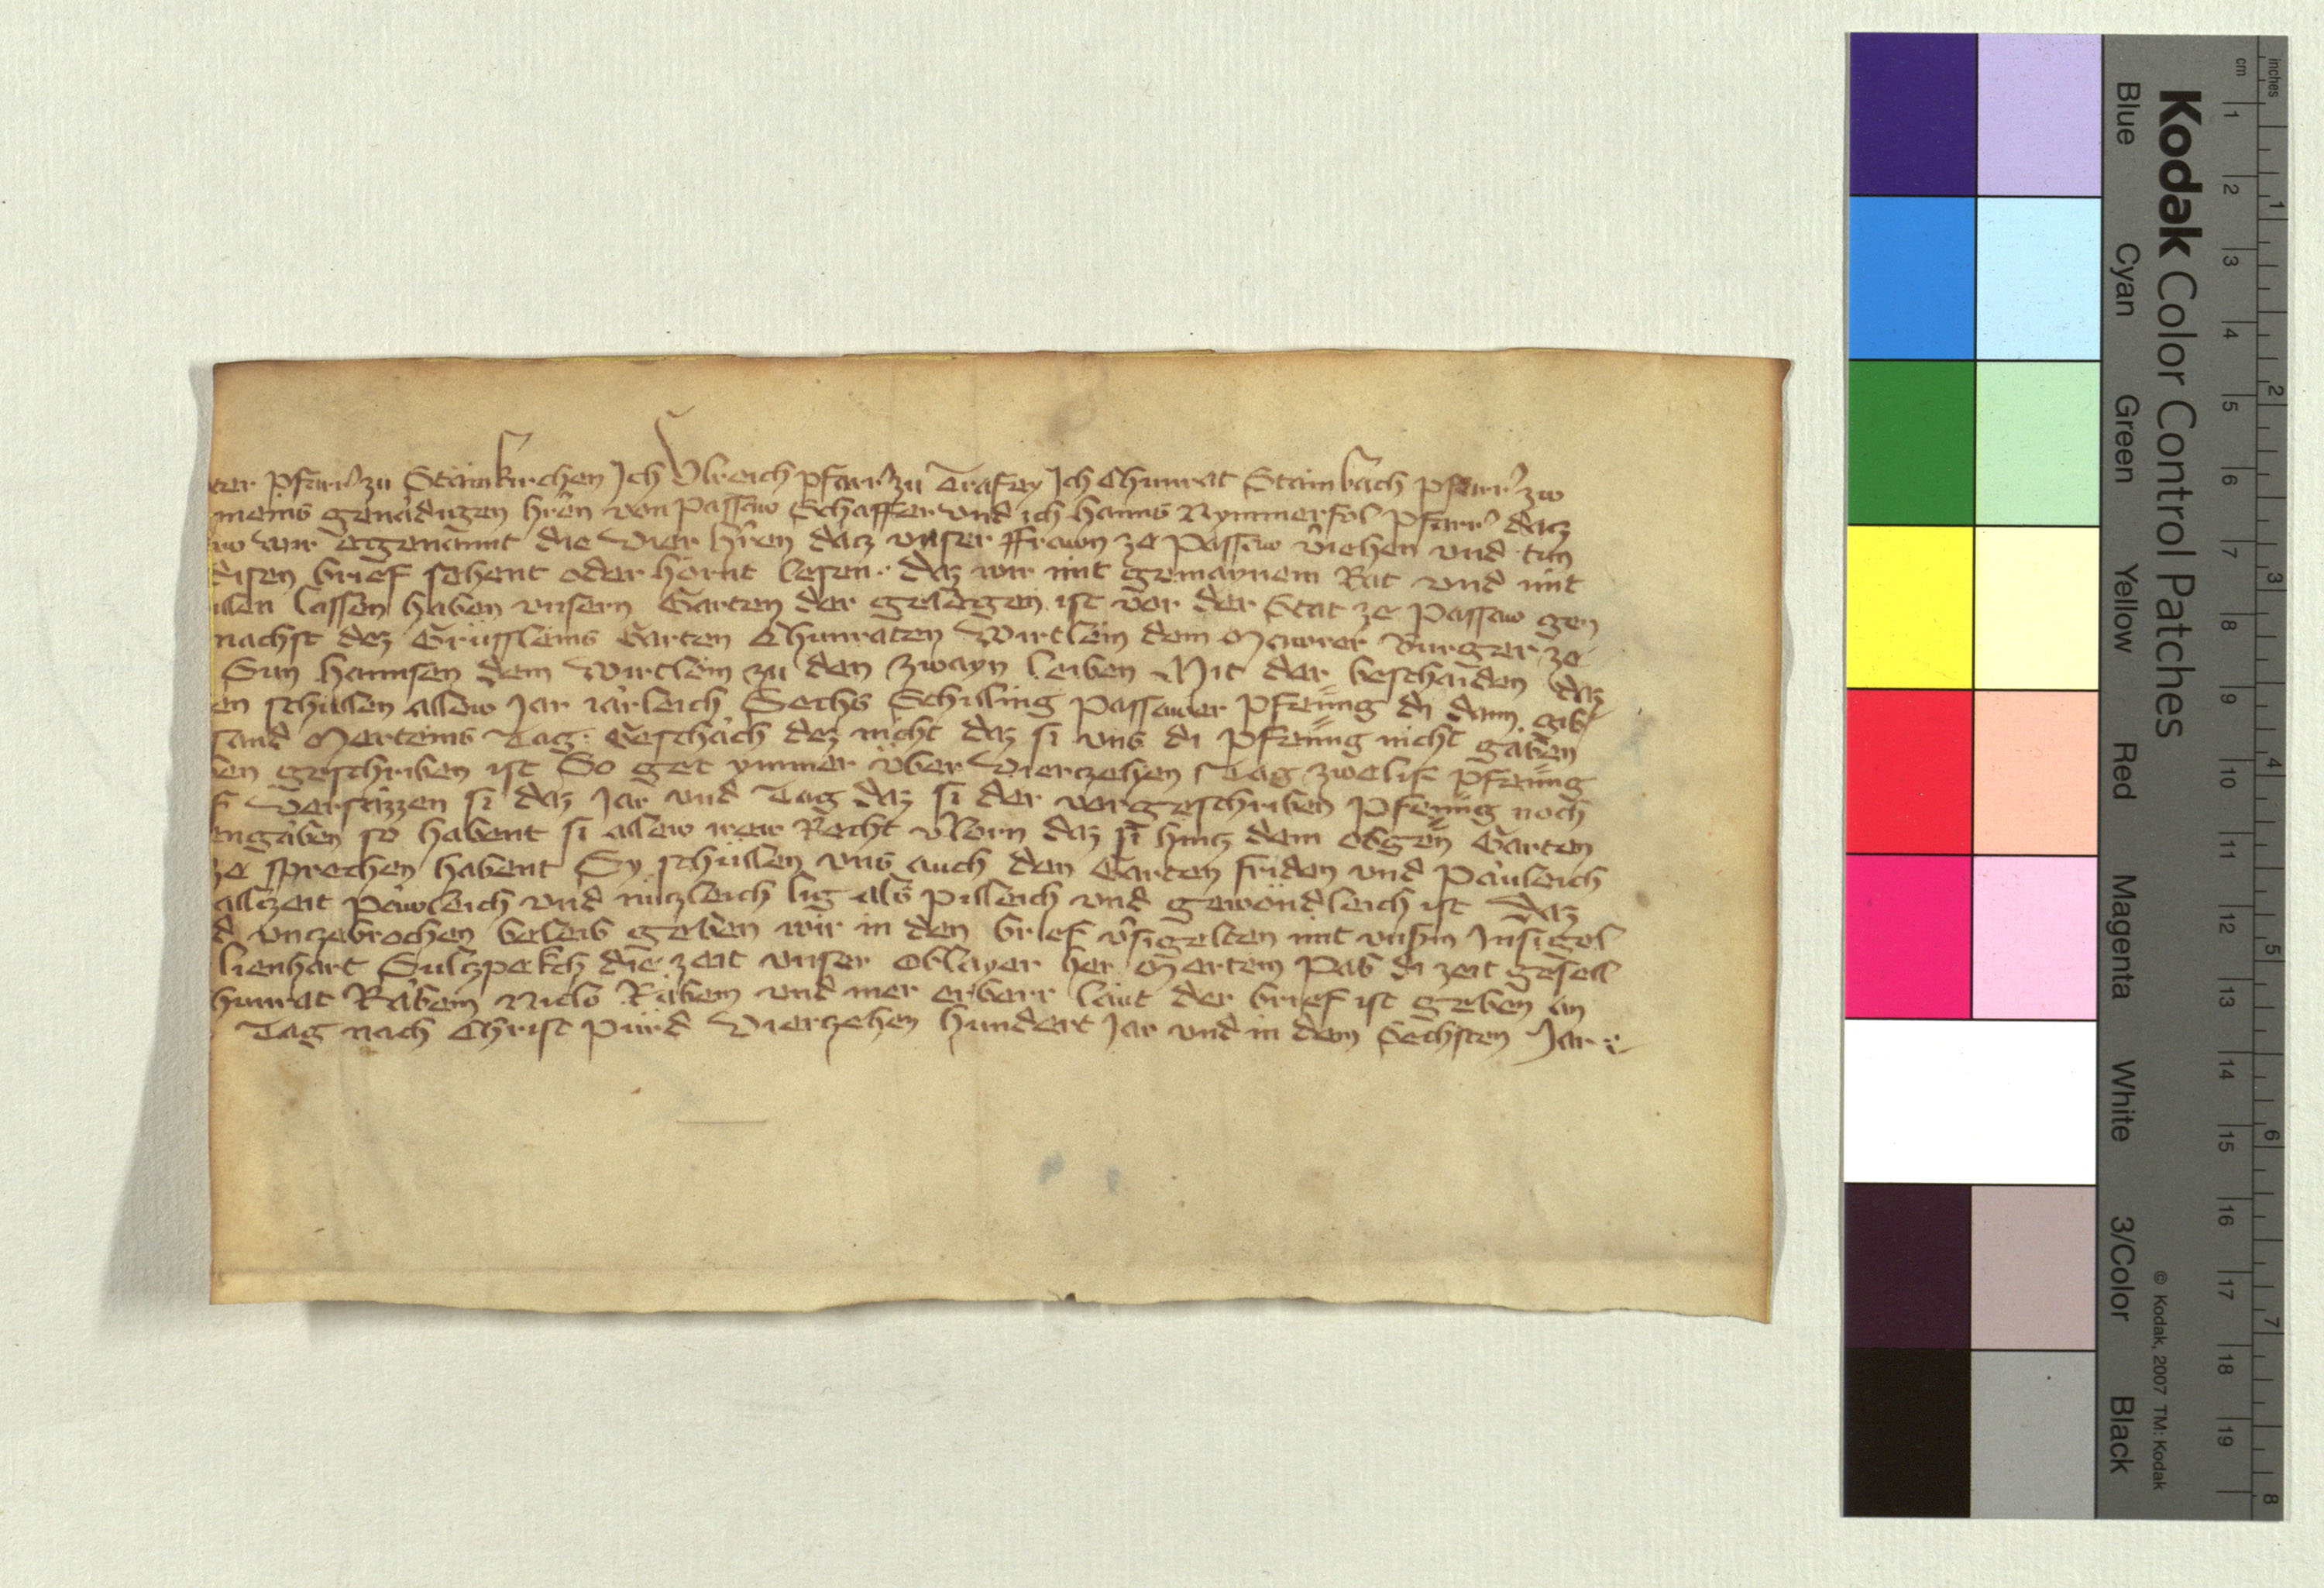 Pfarr zu Stainkirchen Ich Ulreich pfarr zu Trafey Ich Chunrat Stainbach pfarr zw
meins genädigen hren von Passaw Schaffer vnd ich hanns Nymmerfol Pfarr dacz
wir egenannt die Vier hren dacz vnser ffrawn ze Passaw vriehen vnd tun
disen brief sehent oder hörnt lesen daz wir mit gemaynem Rat vnd mit
lassen haben vnsern Garten der gelegen ist vor der Stat ze Passaw gen
nachst dez Grüssleins Garten Chunraten Wirtlein dem Mawrer Burger ze
Sun hannsen dem Wirtlein zu den zwayn leiben Mit der beschaiden daz
en schullen allew Jar iärleich Sechs Schilling Passawer Pfenng di dann
sand Merteins Tag Geschäch dez nicht daz si vns di Pfenng nicht gäben
ben geschriben ist So get ymmer über Vierzehen Tag zwelif Pfenng
Versäzzen si daz Jar vnd Tag daz si der vorgeschriben Pfenng noch
engäben so habent si allew irew Recht vlorn daz si hincz dem obgen Garten
ze sprechen habent Sy schüllen vns auch den Garten friden vnd Päuleich
allczeit Päwleich vnd nüczleich lig als pilleich vnd gewöndleich ist Daz
d vnzebrochen beleib geben wir in den brief vsigelten mit vnsm Insigel
lienhart Sulczpekch die zeit vnser Oblayer her Mertein Pab di zeit gesell
hunrat Räbein Niclo Räbein vnd mer erberr läut der brief ist geben an
Tag nach Christ pürd Vierzehen hundert Jar vnd in dem Sechsten Jar
Kodak Color Control Patches
Blue Cyan Green Yellow Red Magenta White 3/Color Black
© Kodak, 2007 TM: Kodak
inches 1 2 3 4 5 6 7 8
cm 1 2 3 4 5 6 7 8 9 10 11 12 13 14 15 16 17 18 19